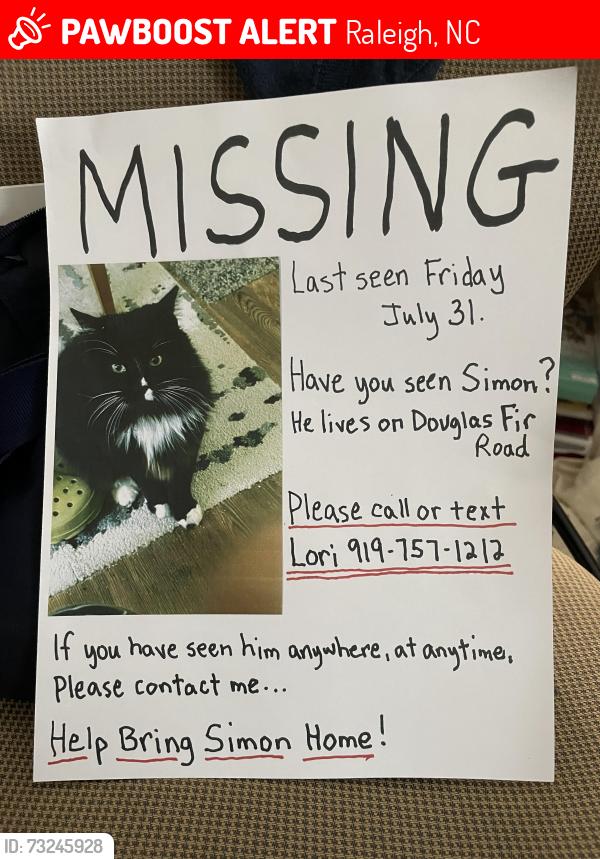 PAWBOOST ALERT Raleigh, NC
MISSING
Last seen Friday
July 31.
Have you seen Simon?
He lives on Douglas Fir
Road
Please call or text
Lori 919-757-1212
If you have seen him anywhere, at anytime,
Please contact me...
Help Bring Simon Home!
ID: 73245928